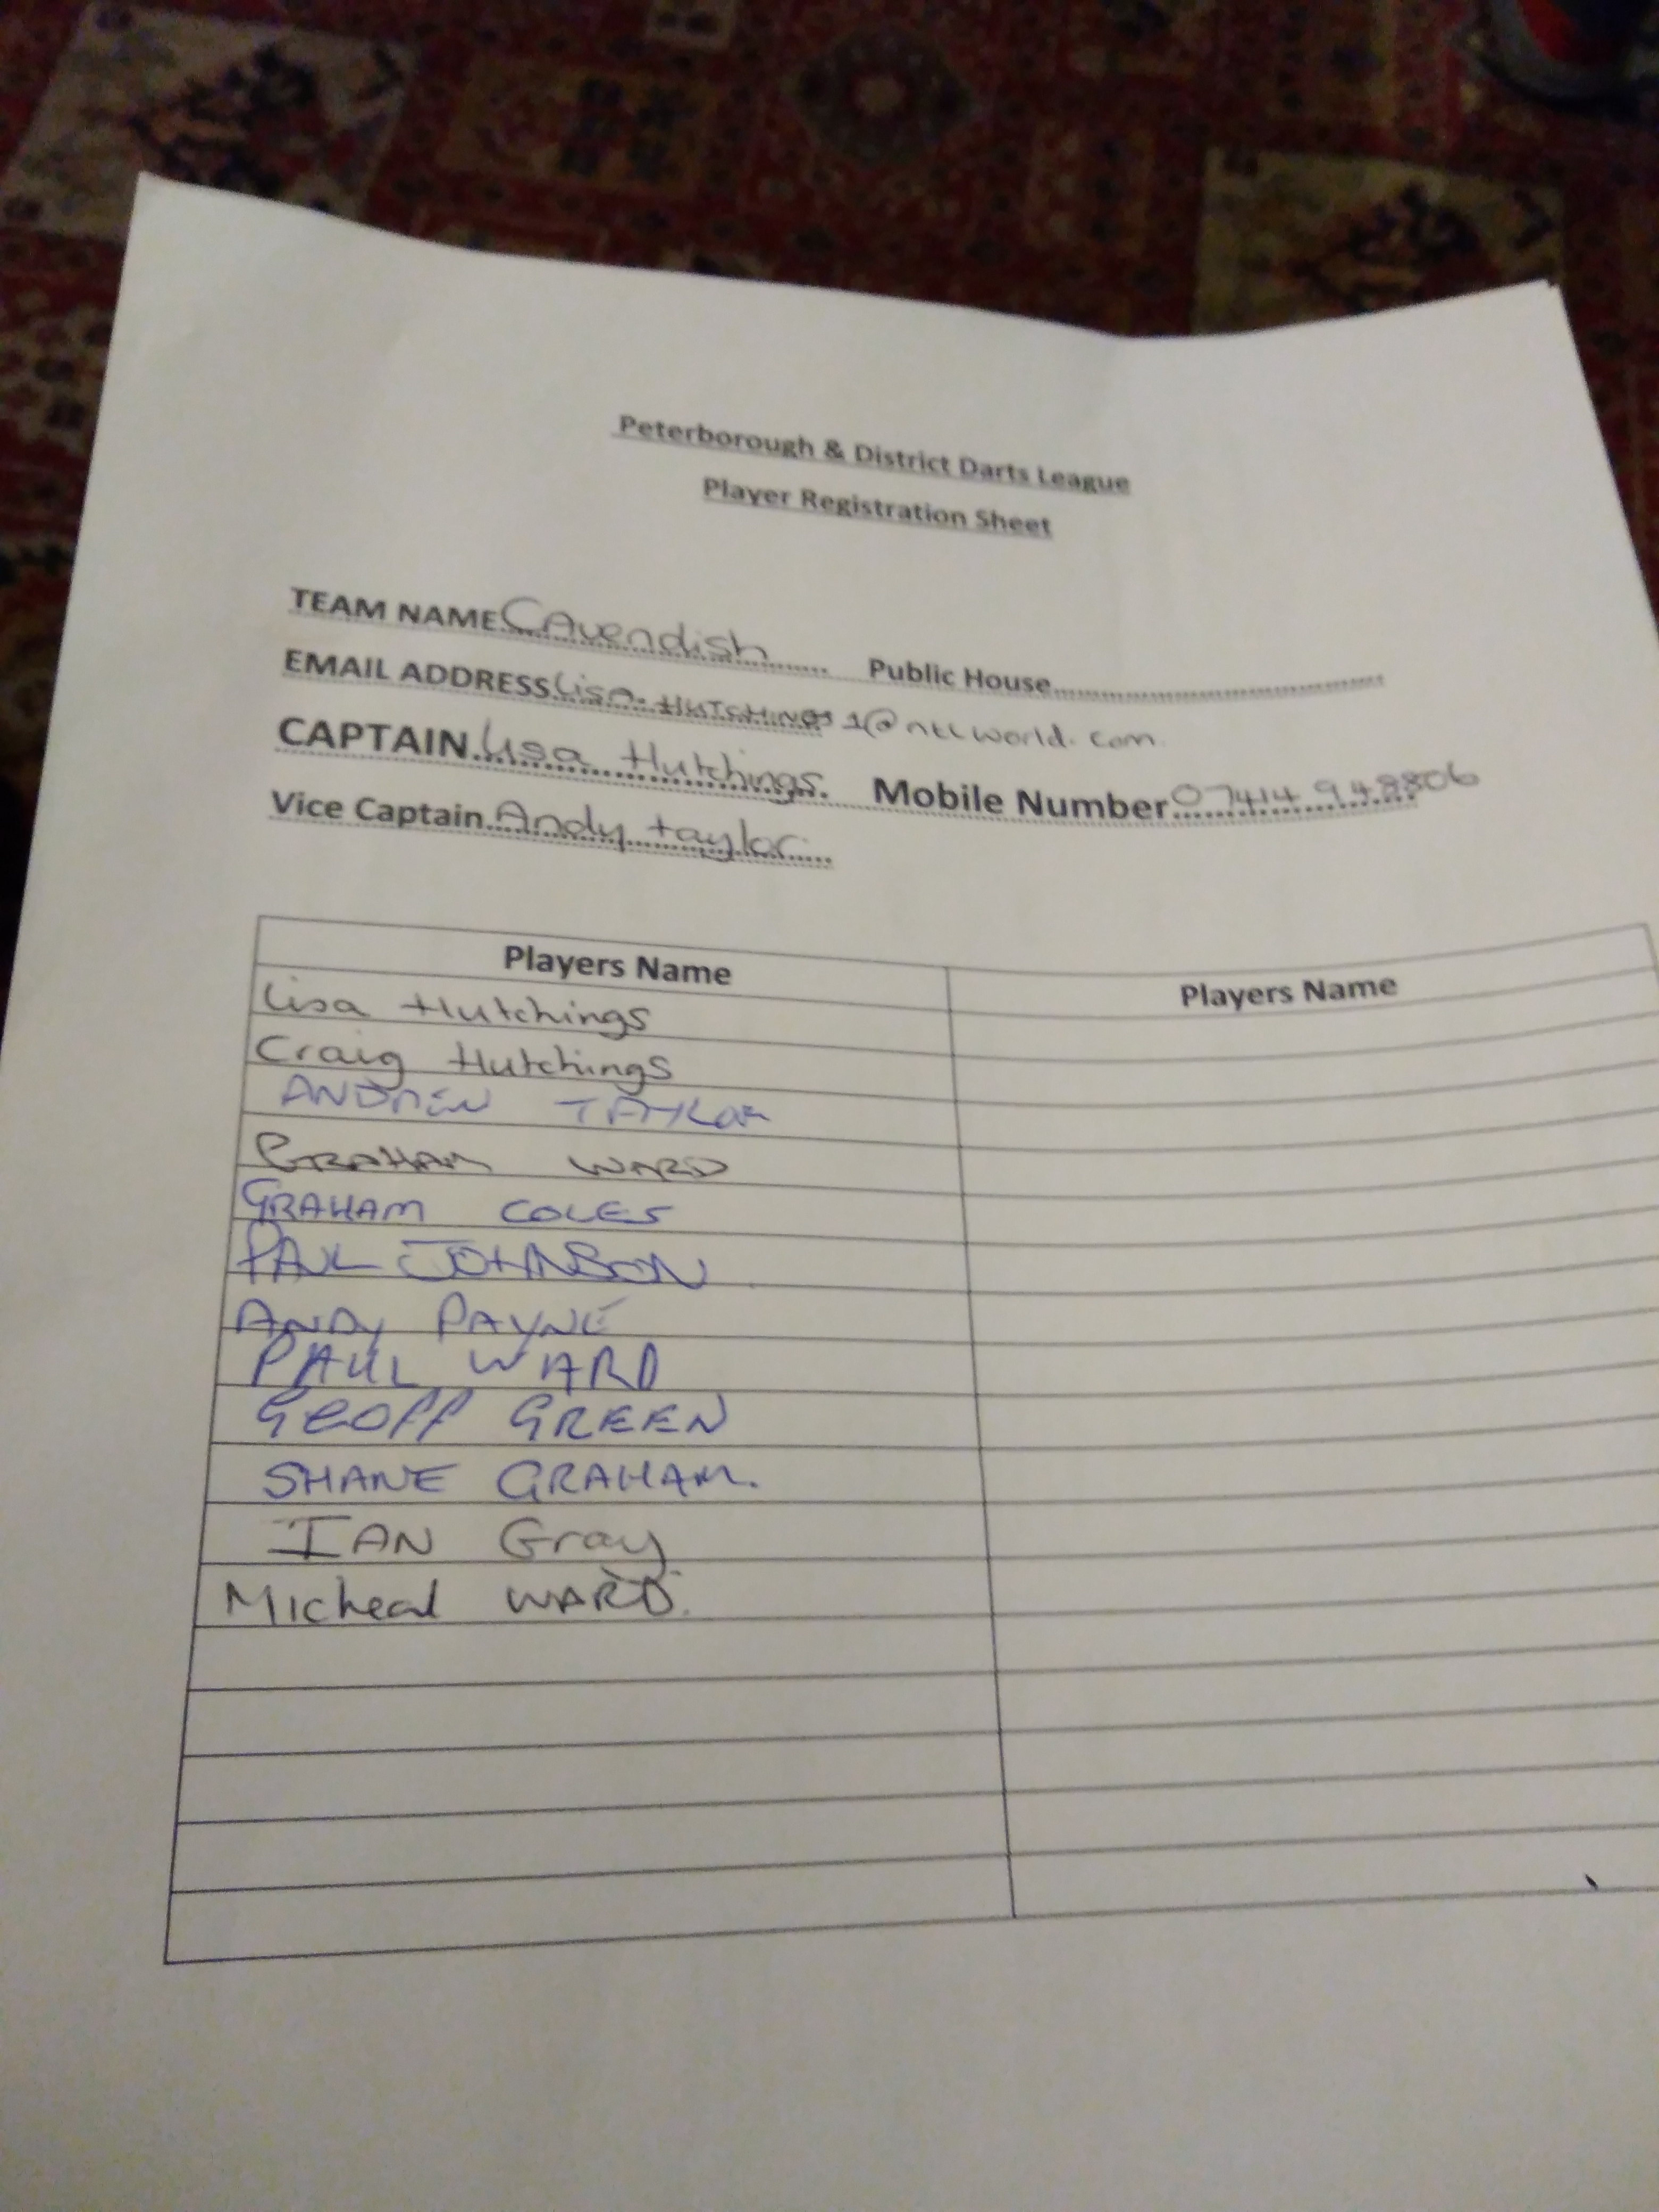 Peterborough & District Darts League
Player Registration Sheet
TEAM NAME Cavendish Public House
EMAIL ADDRESS Lisa.HUTCHINGS1@ntlworld.com
CAPTAIN Lisa Hutchings. Mobile Number 07414 948806
Vice Captain Andy taylor
Players Name Players Name
Lisa Hutchings
Craig Hutchings
ANDREW TAYLOR
GRAHAM WARD
GRAHAM COLES
PAUL JOHNSON
ANDY PAYNE
PAUL WARD
GEOFF GREEN
SHANE GRAHAM.
IAN Gray
Micheal WARD.